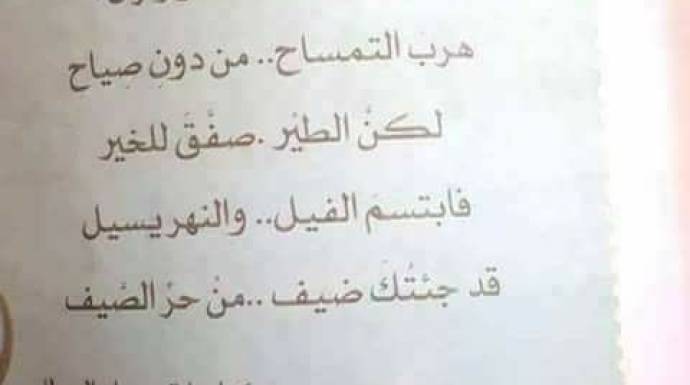 هرب التمساح.. من دونِ صِياح
لكنَّ الطيْر .صفَّقَ للخير
فابتسمَ الفيل.. والنهر يسيل
قد جئتُكَ ضيف ..منْ حرِّ الصَيف